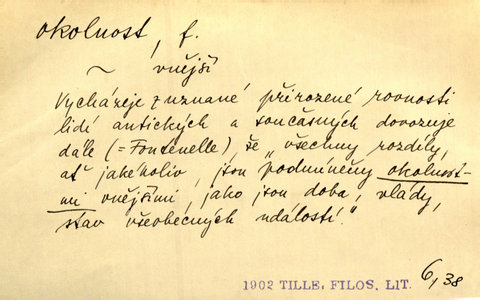 okolnost, f.
~ vnější
Vycházeje z uznané přirozené rovnosti
lidí antických a současných dovozuje
dále (= Fontenelle), že „všechny rozdíly,
ať jakékoliv, jsou podmíněny okolnost-
mi vnějšími, jako jsou doba, vlády,
stav všeobecných událostí."
1902 TILLE, FILOS. LIT. 6, 38